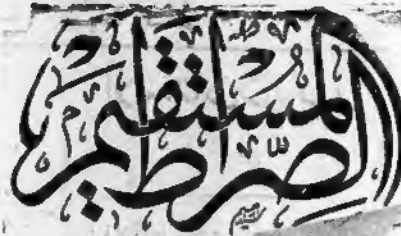 الصِّراط
المستقيم